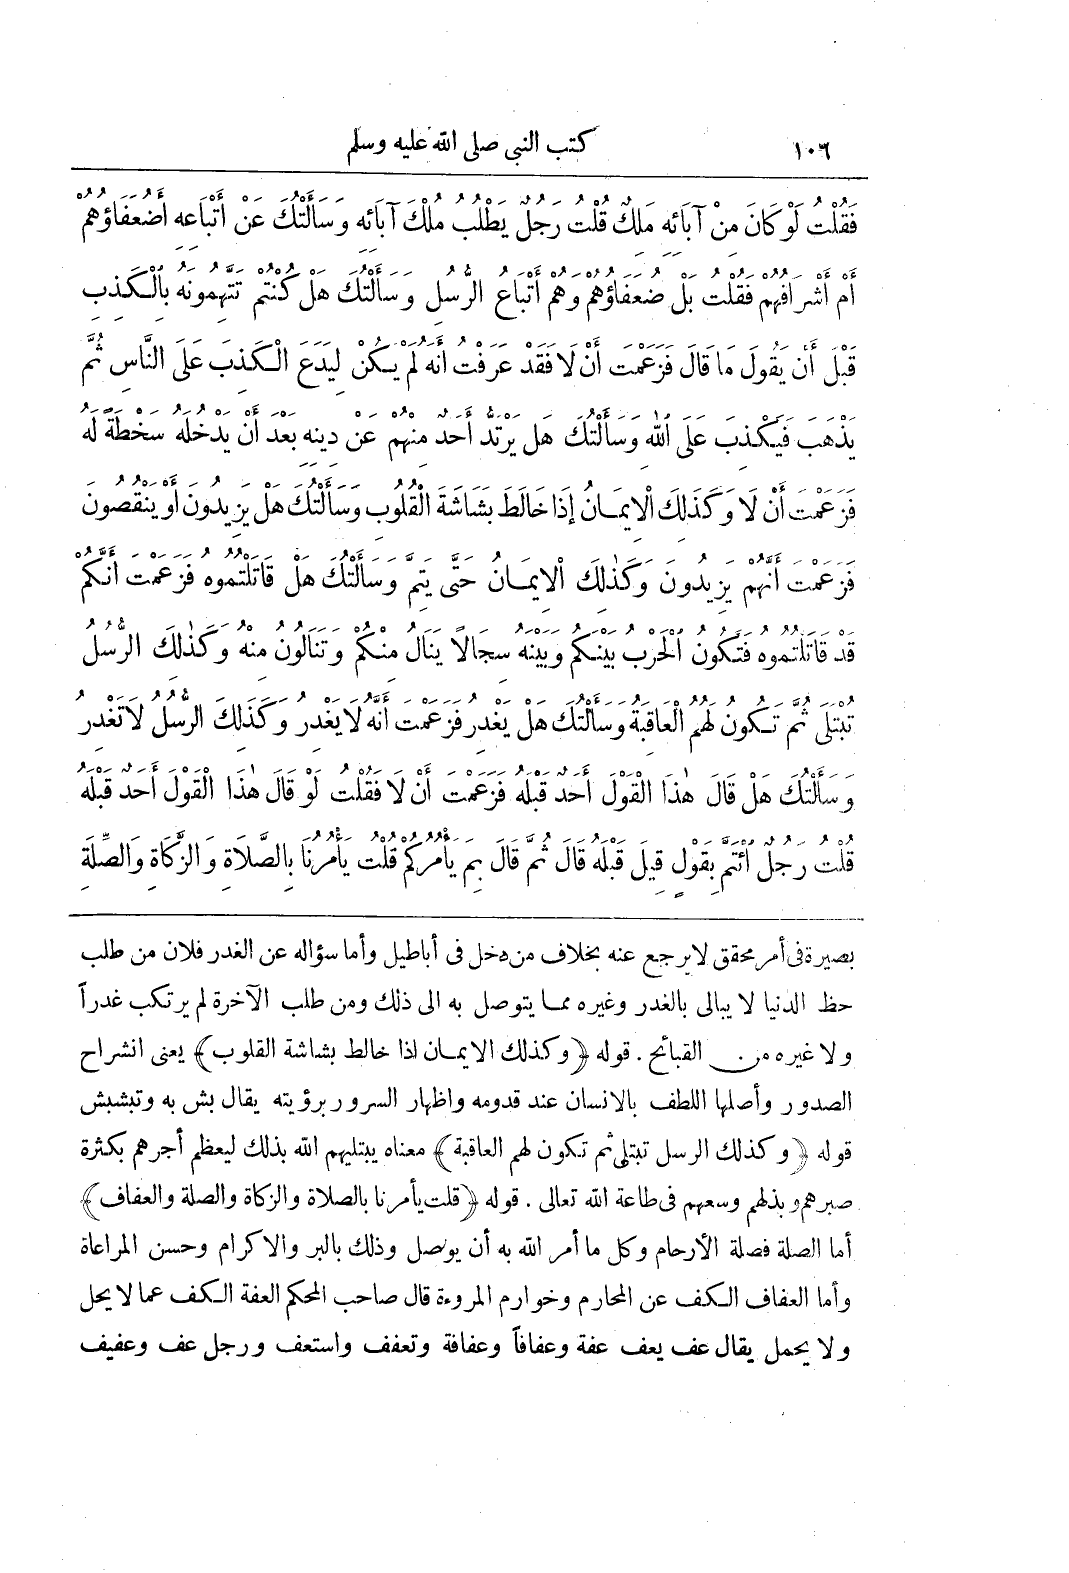 ١٠٦ كتب النبى صلى الله عليه وسلم
فَقُلْتُ لَوْ كَانَ مِنْ آبَائِهِ مَلِكٌ قُلْتُ رَجُلٌ يَطْلُبُ مُلْكَ آبَائِهِ وَسَأَلْتُكَ عَنْ أَتْبَاعِهِ أَضُعَفَاؤُهُمْ
أَمْ أَشْرَافُهُمْ فَقُلْتَ بَلْ ضُعَفَاؤُهُمْ وَهُمْ أَتْبَاعُ الرُّسُلِ وَسَأَلْتُكَ هَلْ كُنْتُمْ تَتَّهِمُونَهُ بِالْكَذِبِ
قَبْلَ أَنْ يَقُولَ مَا قَالَ فَزَعَمْتَ أَنْ لَا فَقَدْ عَرَفْتُ أَنَّهُ لَمْ يَكُنْ لِيَدَعَ الْكَذِبَ عَلَى النَّاسِ ثُمَّ
يَذْهَبَ فَيَكْذِبَ عَلَى اللهِ وَسَأَلْتُكَ هَلْ يَرْتَدُّ أَحَدٌ مِنْهُمْ عَنْ دِينِهِ بَعْدَ أَنْ يَدْخُلَهُ سَخْطَةً لَهُ
فَزَعَمْتَ أَنْ لَا وَكَذَلِكَ الْإِيمَانُ إِذَا خَالَطَ بَشَاشَةَ الْقُلُوبِ وَسَأَلْتُكَ هَلْ يَزِيدُونَ أَوْ يَنْقُصُونَ
فَزَعَمْتَ أَنَّهُمْ يَزِيدُونَ وَكَذٰلِكَ الْإِيمَانُ حَتَّى يَتِمَّ وَسَأَلْتُكَ هَلْ قَاتَلْتُمُوهُ فَزَعَمْتَ أَنَّكُمْ
قَدْ قَاتَلْتُمُوهُ فَتَكُونُ الْحَرْبُ بَيْنَكُمْ وَبَيْنَهُ سِجَالًا يَنَالُ مِنْكُمْ وَتَنَالُونَ مِنْهُ وَكَذٰلِكَ الرُّسُلُ
تُبْتَلَى ثُمَّ تَكُونُ لَهُمُ الْعَاقِبَةُ وَسَأَلْتُكَ هَلْ يَغْدِرُ فَزَعَمْتَ أَنَّهُ لَا يَغْدِرُ وَكَذَلِكَ الرُّسُلُ لَا تَغْدِرُ
وَسَأَلْتُكَ هَلْ قَالَ هٰذَا الْقَوْلَ أَحَدٌ قَبْلَهُ فَزَعَمْتَ أَنْ لَا فَقُلْتُ لَوْ قَالَ هٰذَا الْقَوْلَ أَحَدٌ قَبْلَهُ
قُلْتُ رَجُلٌ ائْتَمَّ بِقَوْلٍ قِيلَ قَبْلَهُ قَالَ ثُمَّ قَالَ بِمَ يَأْمُرُكُمْ قُلْتُ يَأْمُرُنَا بِالصَّلَاةِ وَالزَّكَاةِ وَالصِّلَةِ
بصيرة فى أمر محقق لايرجع عنه بخلاف من دخل فى أباطيل وأما سؤاله عن الغدر فلان من طلب
حظ الدنيا لا يبالى بالغدر وغيره مما يتوصل به الى ذلك ومن طلب الآخرة لم يرتكب غدراً
ولا غيره من القبائح . قوله ﴿وكذلك الايمان اذا خالط بشاشة القلوب﴾ يعنى انشراح
الصدور وأصلها اللطف بالانسان عند قدومه واظهار السرور برؤيته يقال بش به وتبشبش
قوله ﴿وكذلك الرسل تبتلى ثم تكون لهم العاقبة﴾ معناه يبتليهم الله بذلك ليعظم أجرهم بكثرة
صبرهم وبذلهم وسعهم فى طاعة الله تعالى . قوله ﴿قلت يأمرنا بالصلاة والزكاة والصلة والعفاف﴾
أما الصلة فصلة الأرحام وكل ما أمر الله به أن يوصل وذلك بالبر والاكرام وحسن المراعاة
وأما العفاف الكف عن المحارم وخوارم المروءة قال صاحب المحكم العفة الكف عما لا يحل
ولا يحمل يقال عف يعف عفة وعفافاً وعفافة وتعفف واستعف ورجل عف وعفيف